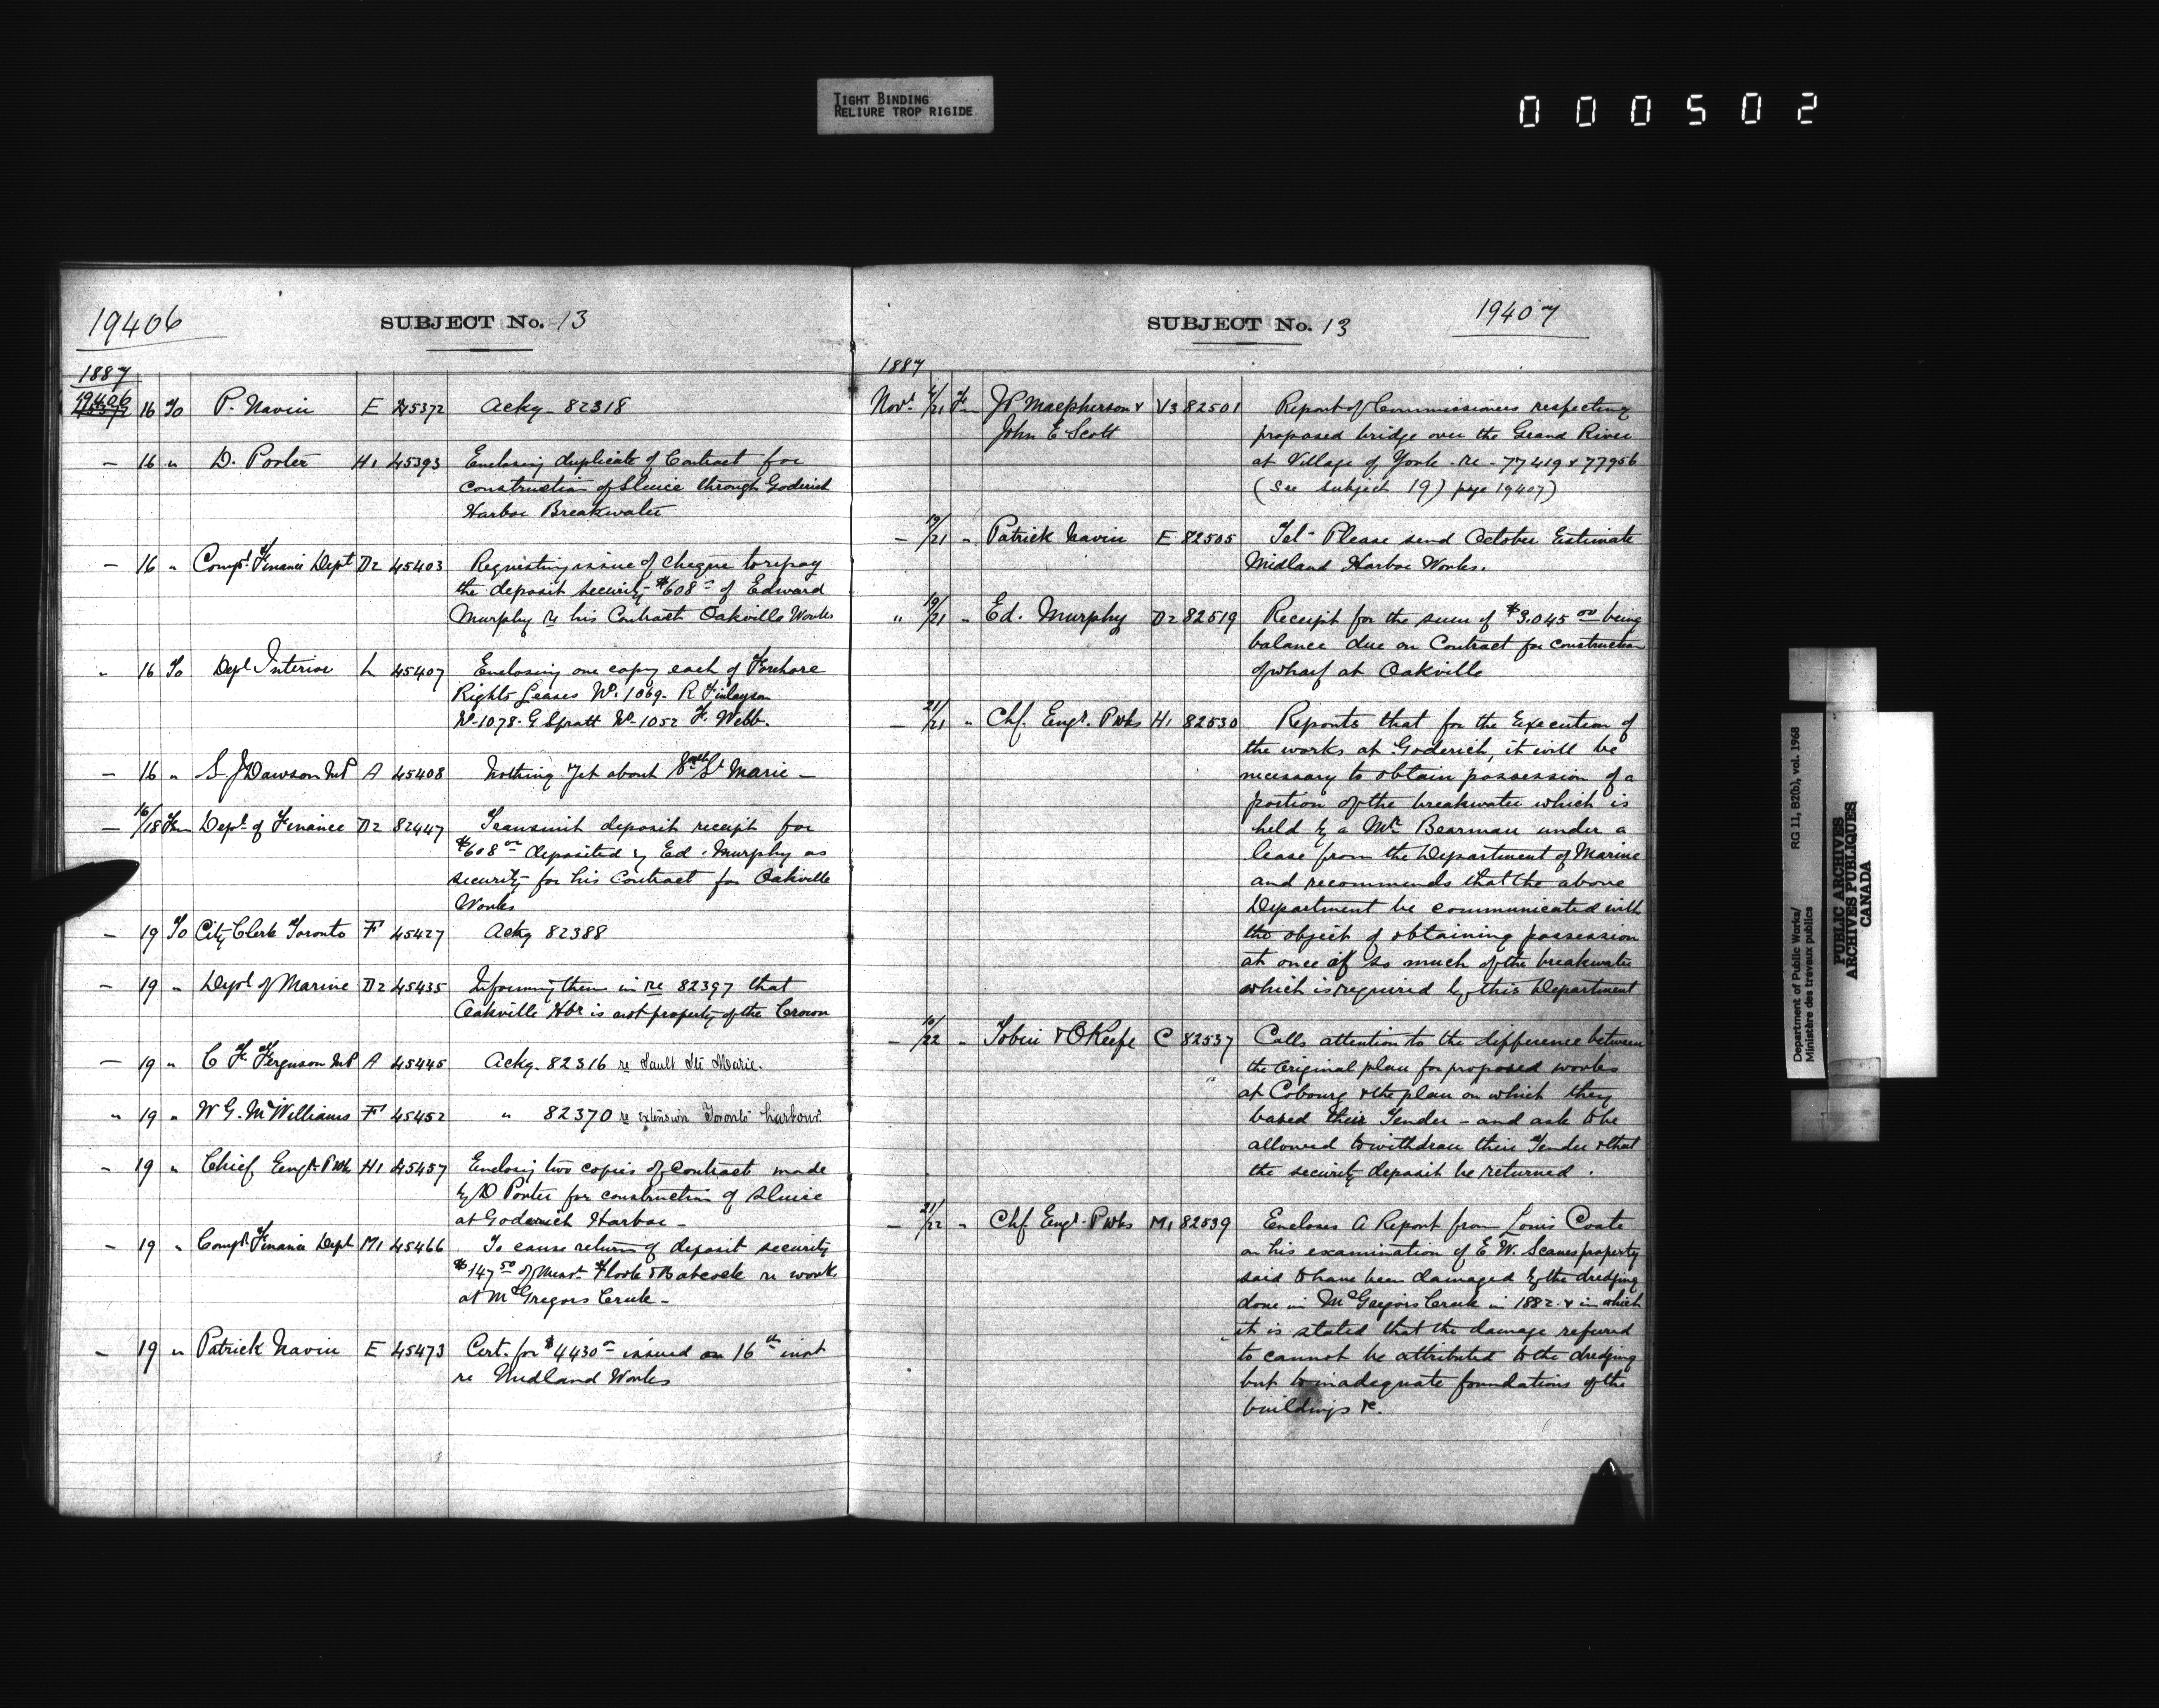 TIGHT BINDING
RELIURE TROP RIGIDE
000502
19406
SUBJECT No. 13
1887
19406
16 To P. Navin E 45372 Ackg. 82318
— 16 " D. Porter H1 45393 Enclosing duplicate of Contract for
construction of Sluice through Goderich
Harbor Breakwater
— 16 " Compt. Finance Dept D2 45403 Requesting issue of cheque to repay
the deposit security $608 of Edward
Murphy re his Contract Oakville Works
" 16 To Dept Interior L 45407 Enclosing one copy each of Foreshore
Rights Leases No. 1069. R Finlayson
No 1078. G Spratt No 1052 F. Webb.
— 16 " S. J Dawson MP A 45408 Nothing yet about Sault St Marie —
— 16/18 Fm Dept. of Finance D2 82447 Transmit deposit receipt for
$608 00 deposited by Ed. Murphy as
security for his Contract for Oakville
Works
— 19 To City Clerk Toronto F 45427 Ackg 82388
— 19 " Dept of Marine D2 45435 Informing them in re 82397 that
Oakville Hbr is not property of the Crown
— 19 " C F. Ferguson MP A 45445 Ackg. 82316 re Sault Ste Marie.
" 19 " W G. McWilliams F 45452 " 82370 re extension Toronto harbour.
— 19 " Chief Engr. P Wks H1 45457 Enclosg two copies of Contract made
by D Porter for construction of Sluice
at Goderich Harbor —
— 19 " Compt. Finance Dept M1 45466 To cause return of deposit security
$147 50 of Messrs. Flook & Babcock re work
at McGregors Creek —
— 19 " Patrick Navin E 45473 Cert. for $4430 issued on 16th inst
re Midland Works
SUBJECT No. 13
19407
1887
Novr. /21 Fm JP Macpherson & V3 82501 Report of Commissioners respecting
John E Scott proposed bridge over the Grand River
at Village of York - re - 77419 & 77956
(See subject 19) page 19407)
— 19/21 " Patrick Navin E 82505 Tel - Please send October Estimate
Midland Harbor Works.
" 19/21 " Ed. Murphy D2 82519 Receipt for the sum of $3,045 00 being
balance due on Contract for construction
of wharf at Oakville
— 21/21 " Chf. Engr. P Wks H1 82530 Reports that for the Execution of
the works at Goderich, it will be
necessary to obtain possession of a
portion of the breakwater which is
held by a Mr. Bearman under a
lease from the Department of Marine
and recommends that the above
Department be communicated with
the object of obtaining possession
at once of so much of the breakwater
which is required by this Department
— 16/22 " Tobin & O'Keefe C 82537 Calls attention to the difference between
the Original plan for proposed works
at Cobourg & the plan on which they
based their Tender - and ask to be
allowed to withdraw their Tender & that
the security deposit be returned.
— 21/22 " Chf. Engr. P Wks M1 82539 Encloses a Report from Louis Coste
on his examination of E. W. Scanes property
said to have been damaged by the dredging
done in McGregors Creek in 1882 & in which
it is stated that the damage referred
to cannot be attributed to the dredging
but to inadequate foundations of the
buildings &c.
Department of Public Works/
Ministère des travaux publics
RG 11, B2(b), vol. 1968
PUBLIC ARCHIVES
ARCHIVES PUBLIQUES
CANADA